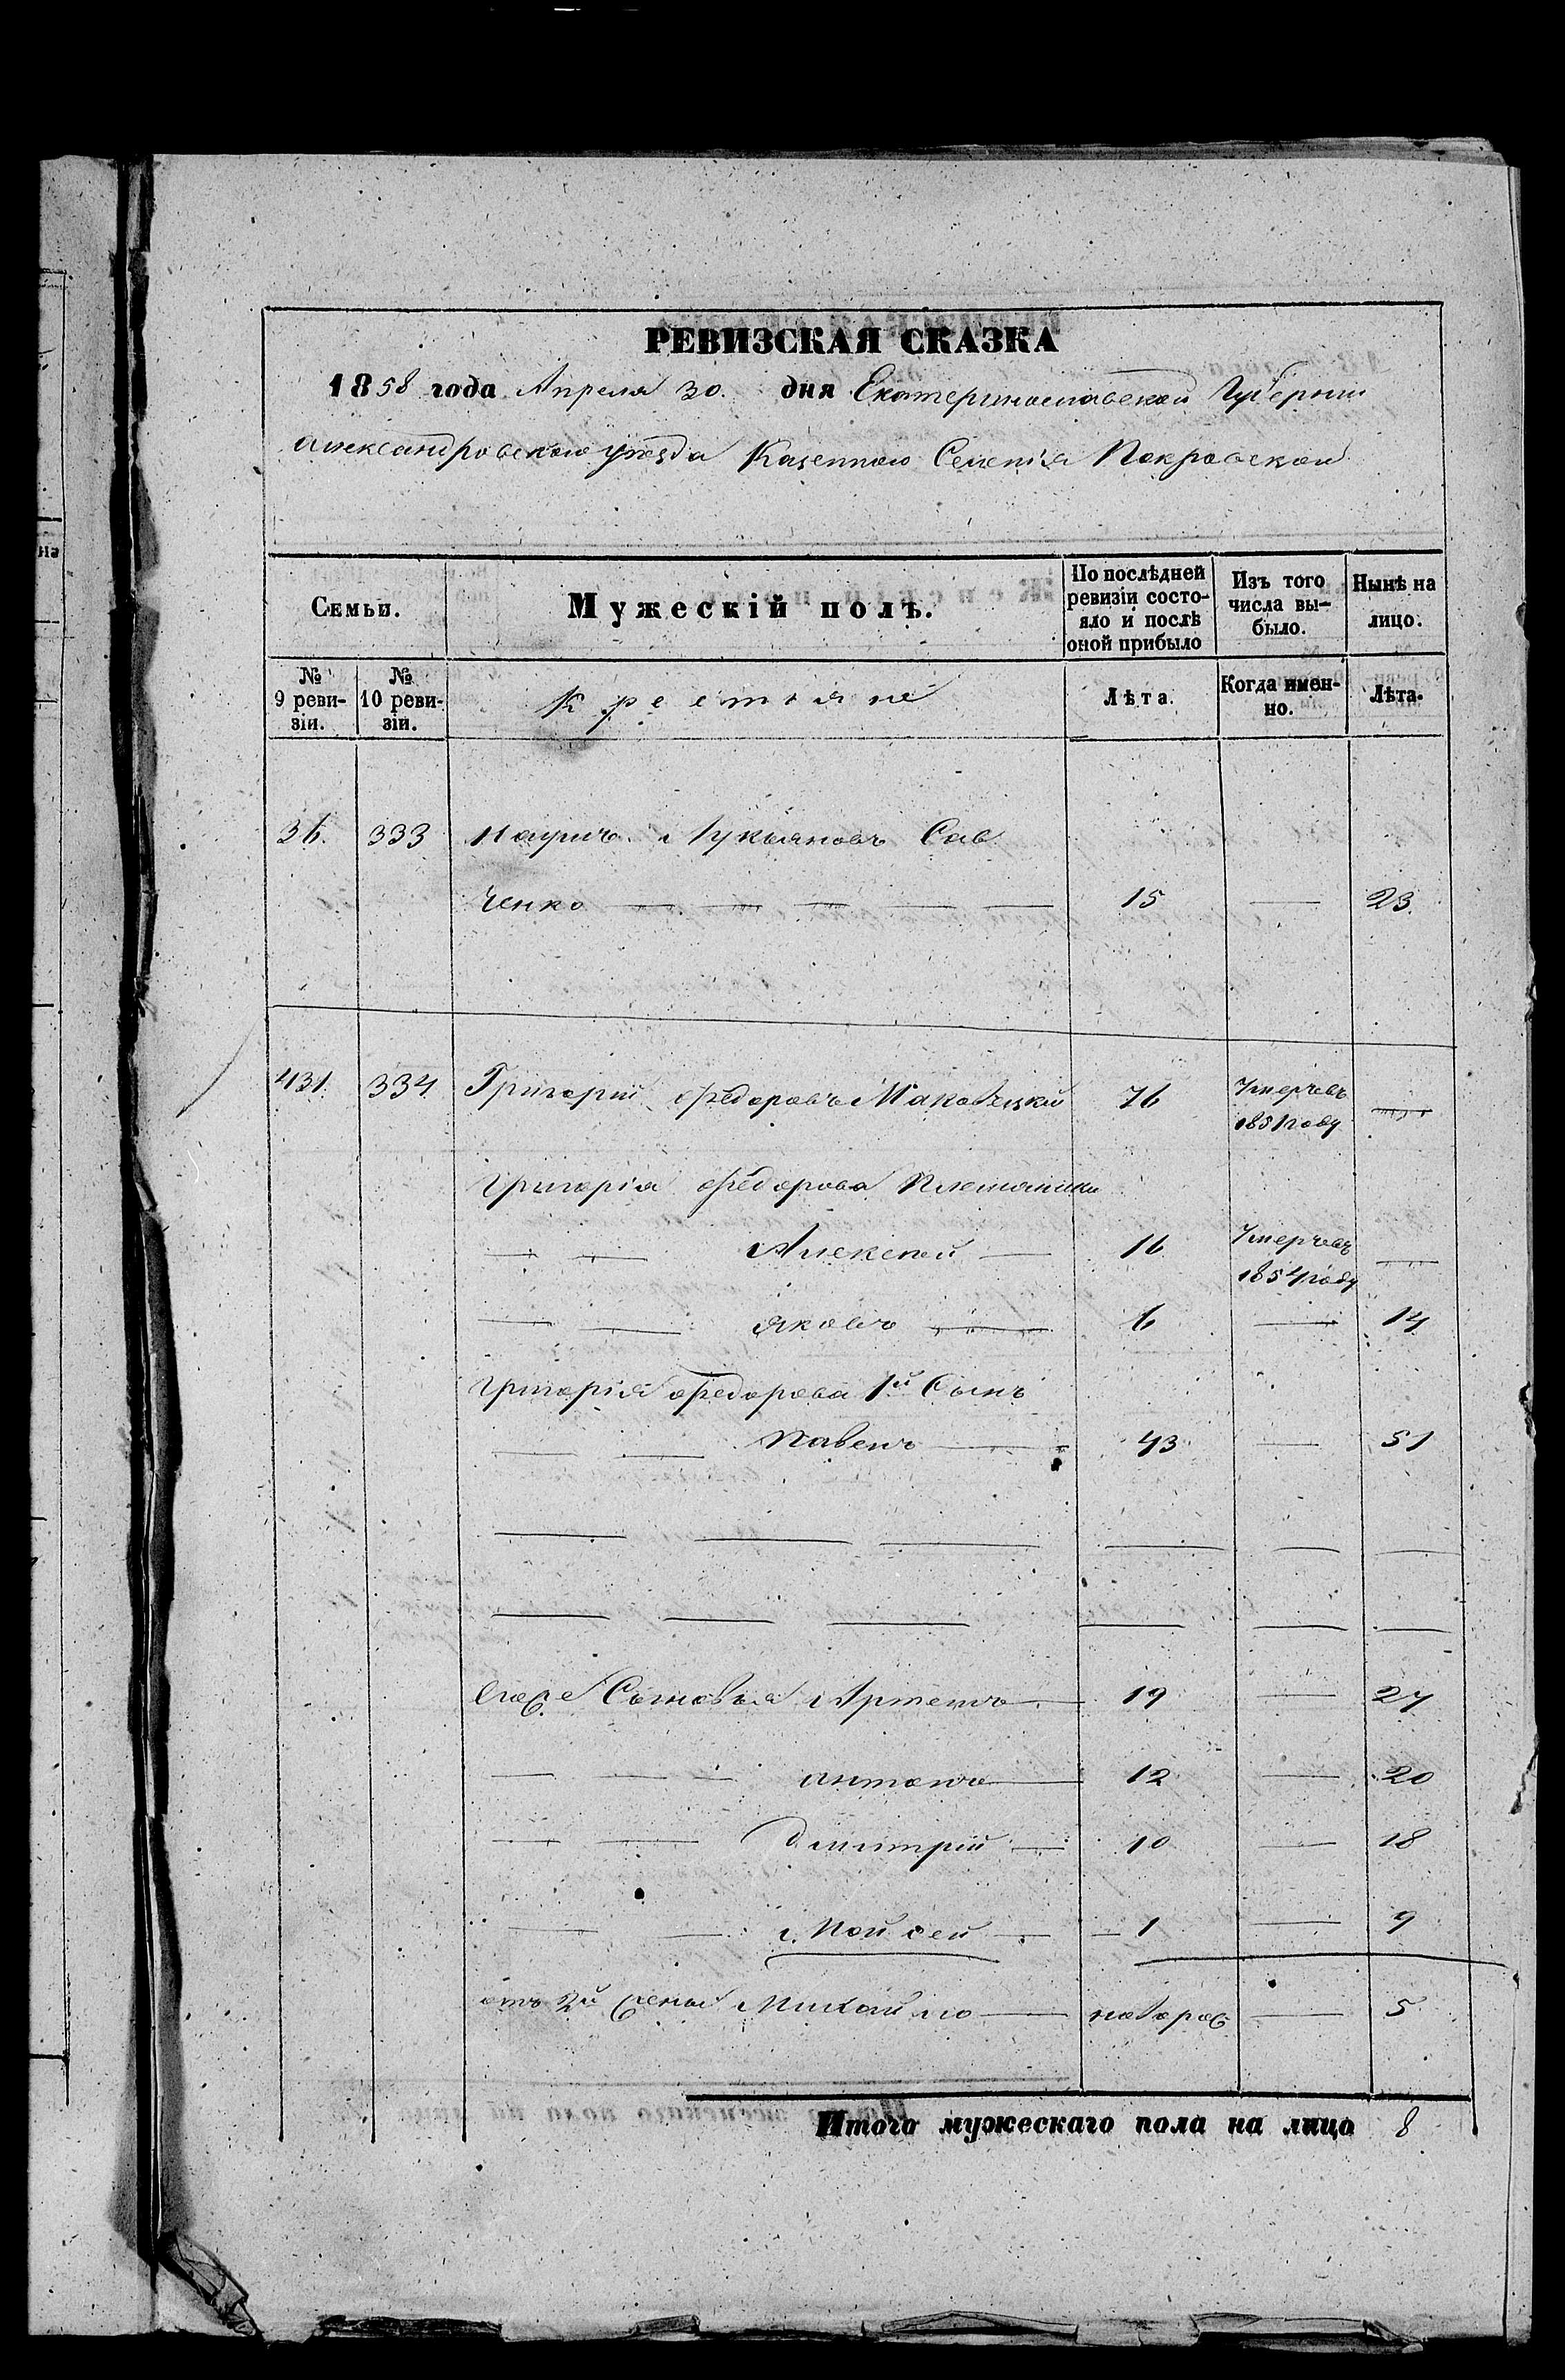 РЕВИЗСКАЯ СКАЗКА
1858 года Апреля 30. дня Екатеринославской Губерніи
Александровского уезда Казенного Селенія Покровской
Семьи.
Мужескій полъ.
По послѣдней ревизіи состояло и послѣ оной прибыло
Изъ того числа выбыло.
Нынѣ на лицо.
№ 9 ревизіи.
№ 10 ревизіи.
Крестьяне
Лѣта.
Когда именно.
Лѣта.
36. 333 Лукьяновъ Сав
ченко 15 — 23.
431. 334 Григорій Федоровъ Маковецкій 76 Умеръ въ 1851 году —
Григорія Федорова Племянники
Алексей — 16 Умеръ въ 1854 году —
Яковъ — 6 — 14
Григорія Федорова 1й Сынъ
Павелъ — 43 — 51
Егоже Сыновья Артемъ — 19 — 27
Антонъ — 12 — 20
Дмитрій — 10 — 18
Мойсей — 1 — 9
отъ 2й жены Михайло — новорож — 5
Итого мужескаго пола на лицо 8
на